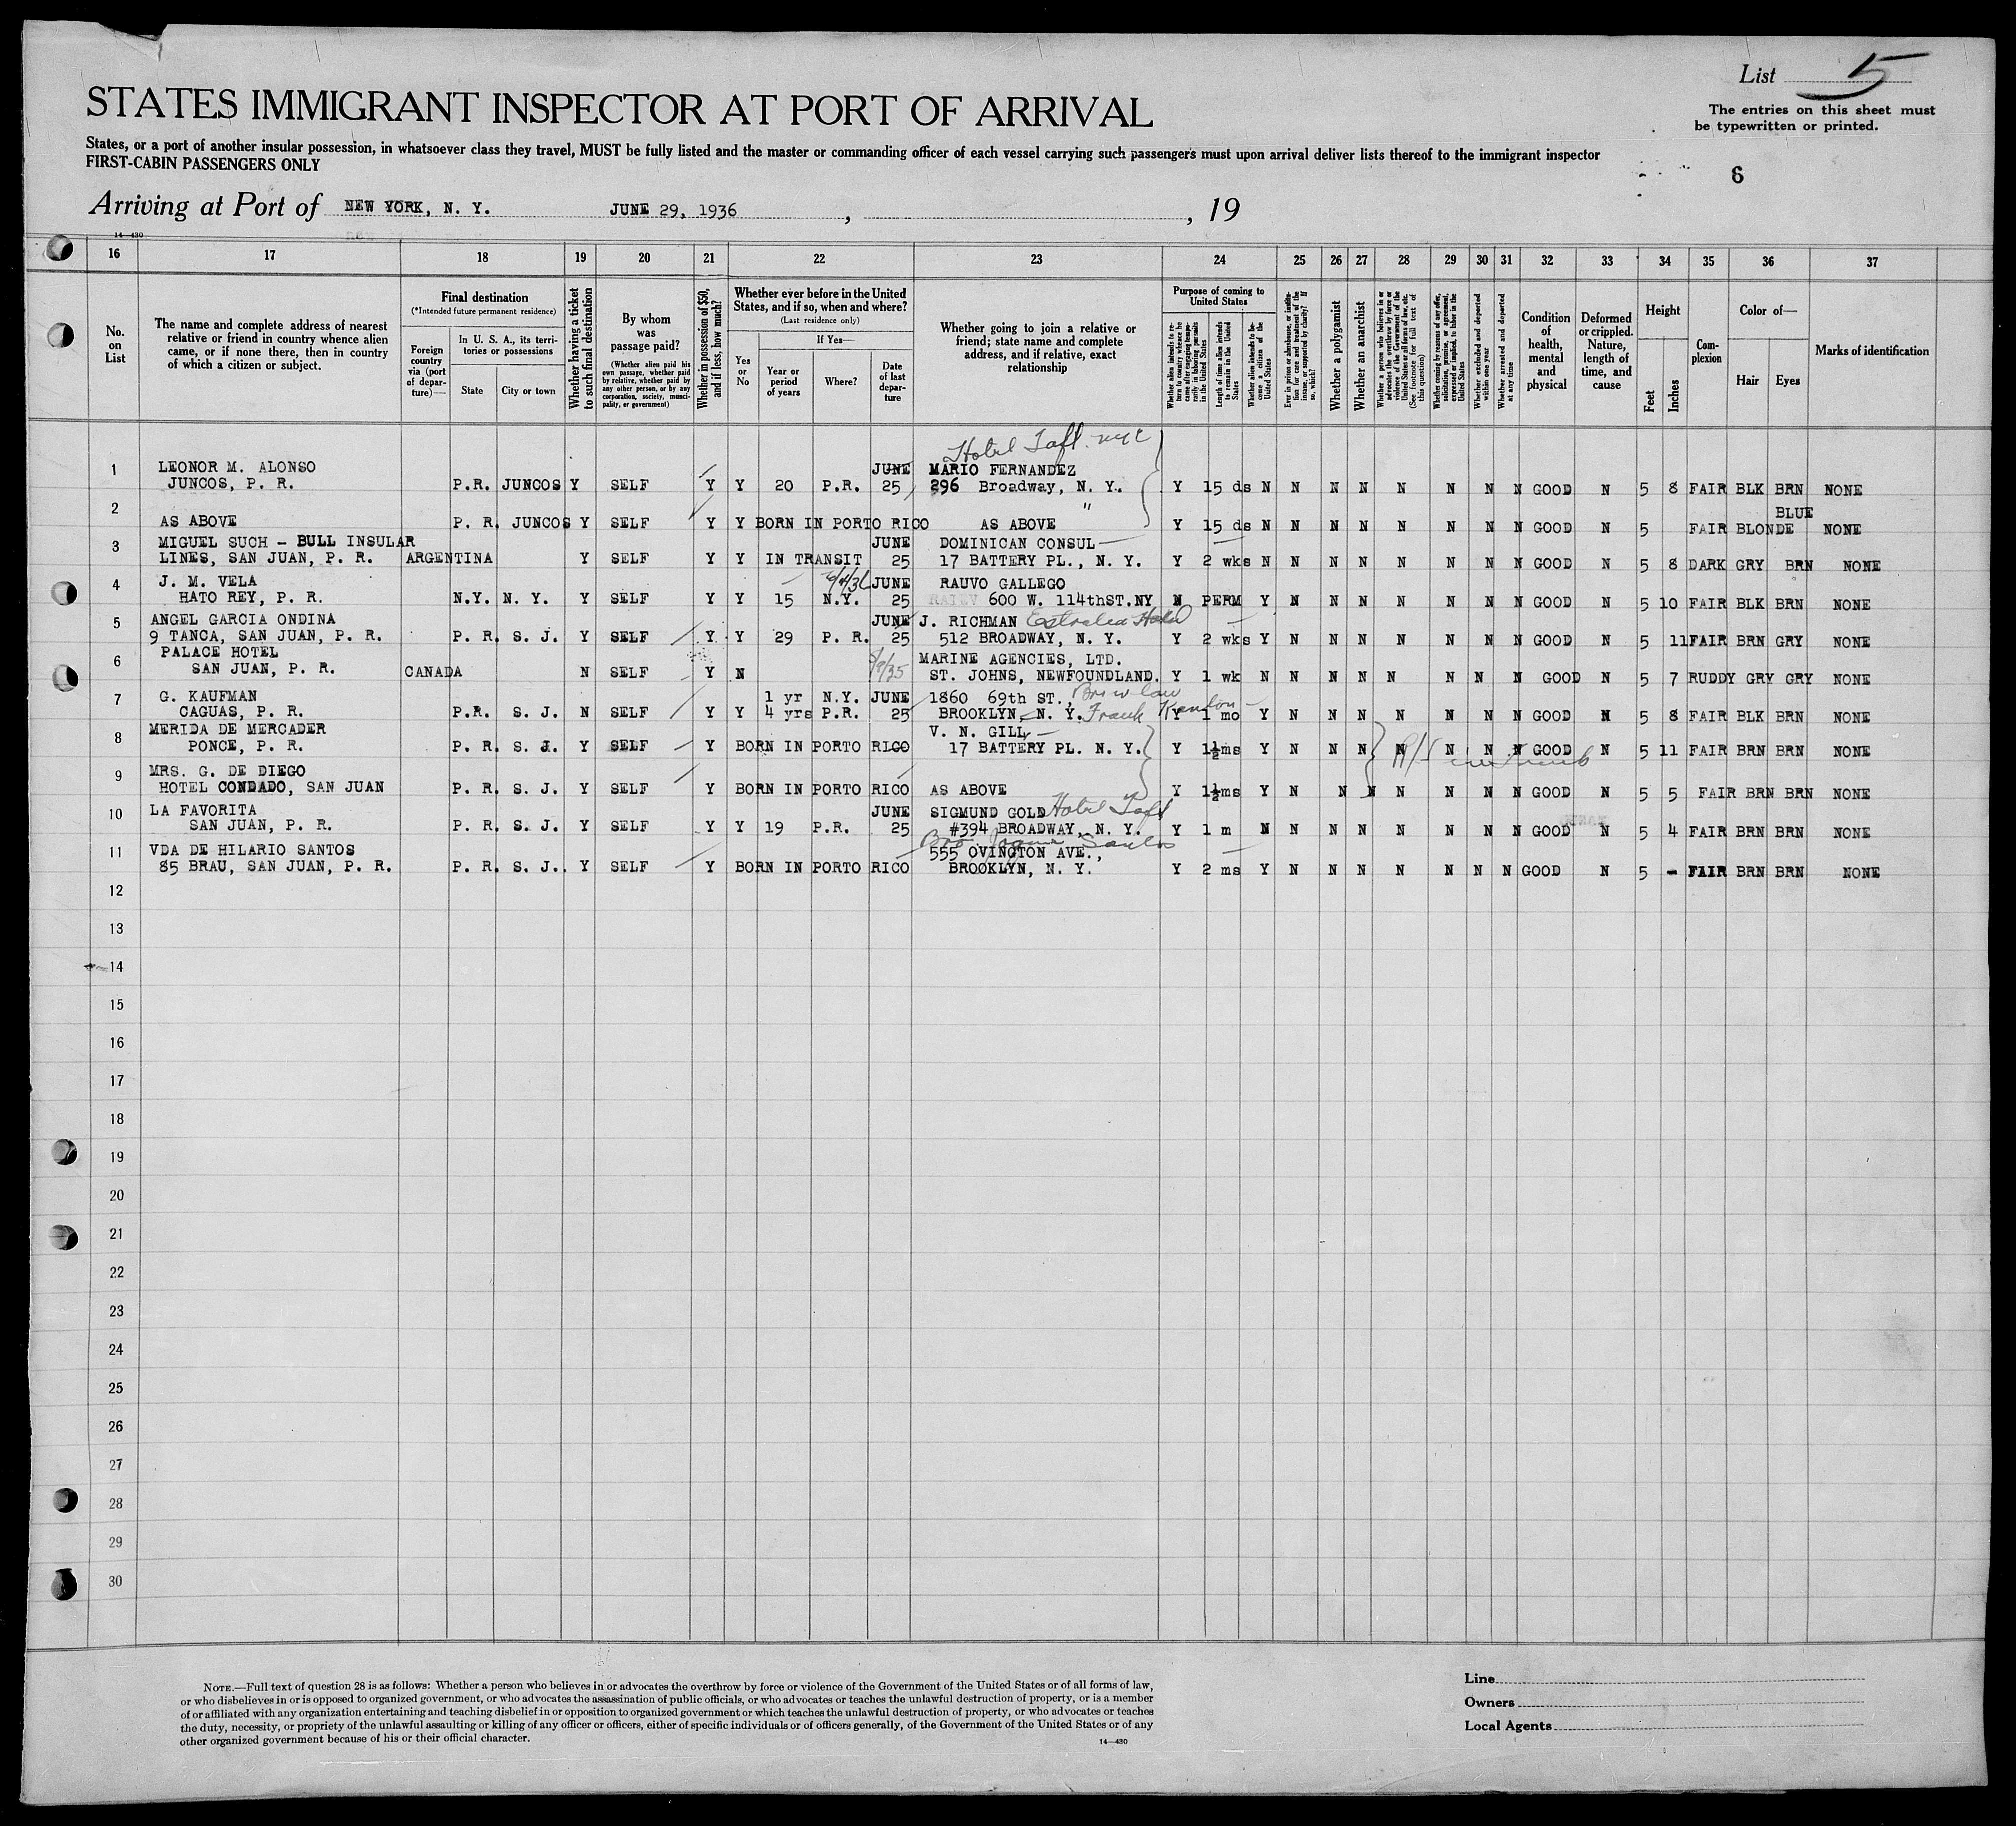 List 5
STATES IMMIGRANT INSPECTOR AT PORT OF ARRIVAL
The entries on this sheet must
be typewritten or printed.
States, or a port of another insular possession, in whatsoever class they travel, MUST be fully listed and the master or commanding officer of each vessel carrying such passengers must upon arrival deliver lists thereof to the immigrant inspector
FIRST-CABIN PASSENGERS ONLY
6
Arriving at Port of NEW YORK, N. Y. JUNE 29, 1936 , , 19
14-430
16 17 18 19 20 21 22 23 24 25 26 27 28 29 30 31 32 33 34 35 36 37
No. on List
The name and complete address of nearest relative or friend in country whence alien came, or if none there, then in country of which a citizen or subject.
Final destination
(*Intended future permanent residence)
Foreign country via (port of departure)—
In U. S. A., its territories or possessions
State
City or town
Whether having a ticket to such final destination
By whom was passage paid?
(Whether alien paid his own passage, whether paid by relative, whether paid by any other person, or by any corporation, society, municipality, or government)
Whether in possession of $50, and if less, how much?
Whether ever before in the United States, and if so, when and where?
(Last residence only)
Yes or No
If Yes—
Year or period of years
Where?
Date of last departure
Whether going to join a relative or friend; state name and complete address, and if relative, exact relationship
Purpose of coming to United States
Whether alien intends to return to country whence he came after engaging temporarily in laboring pursuits in the United States
Length of time alien intends to remain in the United States
Whether alien intends to become a citizen of the United States
Ever in prison or almshouse, or institution for care and treatment of the insane, or supported by charity? If so, which?
Whether a polygamist
Whether an anarchist
Whether a person who believes in or advocates the overthrow by force or violence of the Government of the United States or all forms of law, etc. (See footnote for full text of this question)
Whether coming by reasons of any offer, solicitation, promise, or agreement, expressed or implied, to labor in the United States
Whether excluded and deported within one year
Whether arrested and deported at any time
Condition of health, mental and physical
Deformed or crippled. Nature, length of time, and cause
Height
Feet
Inches
Complexion
Color of—
Hair
Eyes
Marks of identification
Hotel Taft nyc
1 LEONOR M. ALONSO JUNE MARIO FERNANDEZ
JUNCOS, P. R. P.R. JUNCOS Y SELF Y Y 20 P.R. 25 296 Broadway, N. Y. Y 15 ds N N N N N N N N GOOD N 5 8 FAIR BLK BRN NONE
2 " BLUE
AS ABOVE P. R. JUNCOS Y SELF Y Y BORN IN PORTO RICO AS ABOVE Y 15 ds N N N N N N N N GOOD N 5 FAIR BLONDE NONE
3 MIGUEL SUCH - BULL INSULAR JUNE DOMINICAN CONSUL
LINES, SAN JUAN, P. R. ARGENTINA Y SELF Y Y IN TRANSIT 25 17 BATTERY PL., N. Y. Y 2 wks N N N N N N N N GOOD N 5 8 DARK GRY BRN NONE
4 J. M. VELA JUNE RAUVO GALLEGO
HATO REY, P. R. N.Y. N. Y. Y SELF Y Y 15 N.Y. 25 600 W. 114thST.NY N PERM Y N N N N N N N GOOD N 5 10 FAIR BLK BRN NONE
5 ANGEL GARCIA ONDINA JUNE J. RICHMAN
9 TANCA, SAN JUAN, P. R. P. R. S. J. Y SELF Y Y 29 P. R. 25 512 BROADWAY, N. Y. Y 2 wks Y N N N N N N N GOOD N 5 11 FAIR BRN GRY NONE
6 PALACE HOTEL MARINE AGENCIES, LTD.
SAN JUAN, P. R. CANADA N SELF Y N ST. JOHNS, NEWFOUNDLAND. Y 1 wk N N N N N N N N GOOD N 5 7 RUDDY GRY GRY NONE
7 G. KAUFMAN 1 yr N.Y. JUNE 1860 69th ST., Bro in law
CAGUAS, P. R. P.R. S. J. N SELF Y Y 4 yrs P.R. 25 BROOKLYN, N. Y. Frank Y 1 mo Y N N N N N N N GOOD N 5 8 FAIR BLK BRN NONE
8 MERIDA DE MERCADER V. N. GILL
PONCE, P. R. P. R. S. J. Y SELF Y BORN IN PORTO RICO 17 BATTERY PL. N. Y. Y 1½ms Y N N N N N N N GOOD N 5 11 FAIR BRN BRN NONE
9 MRS. G. DE DIEGO
HOTEL CONDADO, SAN JUAN P. R. S. J. Y SELF Y BORN IN PORTO RICO AS ABOVE Y 1½ms Y N N N N N N N GOOD N 5 5 FAIR BRN BRN NONE
10 LA FAVORITA JUNE SIGMUND GOLD Hotel Taft
SAN JUAN, P. R. P. R. S. J. Y SELF Y Y 19 P.R. 25 #394 BROADWAY, N. Y. Y 1 m N N N N N N N N GOOD N 5 4 FAIR BRN BRN NONE
Bro Santos
11 VDA DE HILARIO SANTOS 555 OVINGTON AVE.,
85 BRAU, SAN JUAN, P. R. P. R. S. J. Y SELF Y BORN IN PORTO RICO BROOKLYN, N. Y. Y 2 ms Y N N N N N N N GOOD N 5 - FAIR BRN BRN NONE
12
13
14
15
16
17
18
19
20
21
22
23
24
25
26
27
28
29
30
NOTE.—Full text of question 28 is as follows: Whether a person who believes in or advocates the overthrow by force or violence of the Government of the United States or of all forms of law,
or who disbelieves in or is opposed to organized government, or who advocates the assassination of public officials, or who advocates or teaches the unlawful destruction of property, or is a member
of or affiliated with any organization entertaining and teaching disbelief in or opposition to organized government or which teaches the unlawful destruction of property, or who advocates or teaches
the duty, necessity, or propriety of the unlawful assaulting or killing of any officer or officers, either of specific individuals or of officers generally, of the Government of the United States or of any
other organized government because of his or their official character.
14-430
Line
Owners
Local Agents